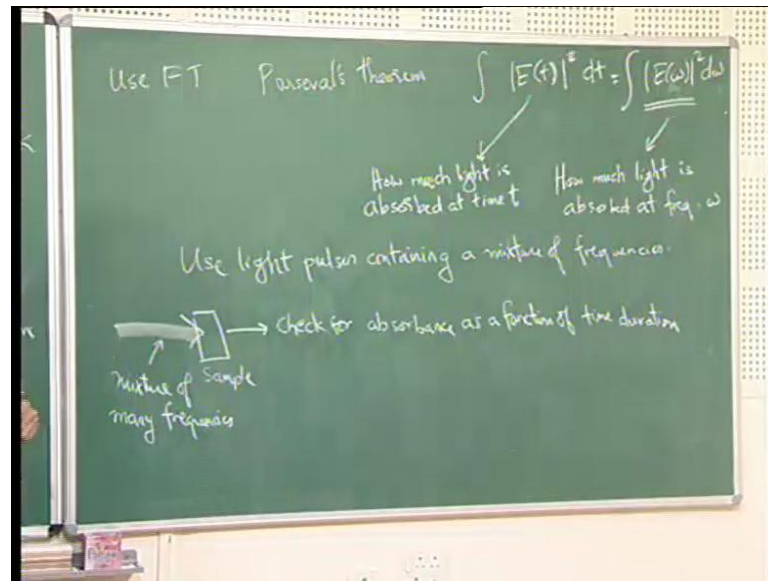 Use FT Parseval's theorem ∫ |E(t)|² dt = ∫ |E(ω)|² dω
How much light is
absorbed at time t
How much light is
absorbed at freq. ω
Use light pulses containing a mixture of frequencies.
→ Check for absorbance as a function of time duration
Sample
mixture of
many frequencies